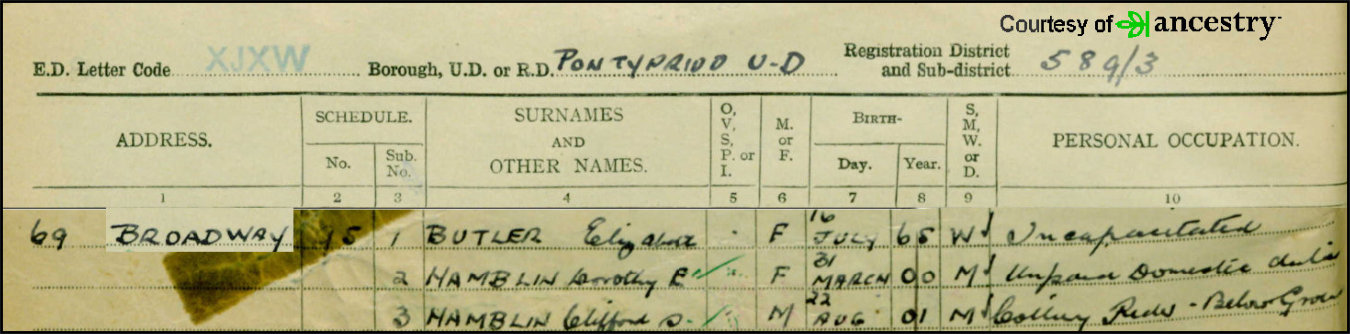 Courtesy of ancestry
E.D. Letter Code XJXW Borough, U.D. or R.D. PONTYPRIDD U-D Registration District and Sub-district 589/3
ADDRESS. SCHEDULE. No. Sub. No. SURNAMES AND OTHER NAMES. O, V, S, P. or I. M. or F. BIRTH- Day. Year. S, M, W. or D. PERSONAL OCCUPATION.
1 2 3 4 5 6 7 8 9 10
69 BROADWAY 75 1 BUTLER Elizabeth F 16 JULY 65 W Incapacitated
2 HAMBLIN Dorothy E F 31 MARCH 00 M Unpaid Domestic duties
3 HAMBLIN Clifford M 22 AUG 01 M Colliery - Below